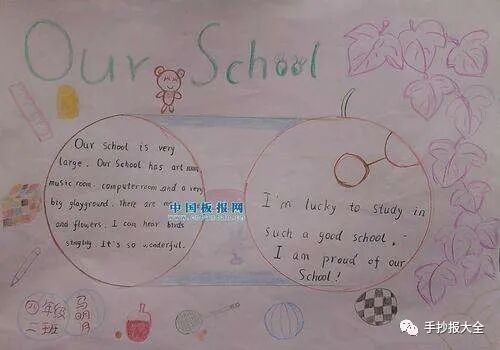 Our School
Our School is very
large. Our School has art room
music room. computer room and a very
big playground. There are
and flowers. I can hear birds
singing. It's so wonderful.
中国板报网
I'm lucky to study in
such a good school.
I am proud of our
School!
四年级
二班
马明月
手抄报大全